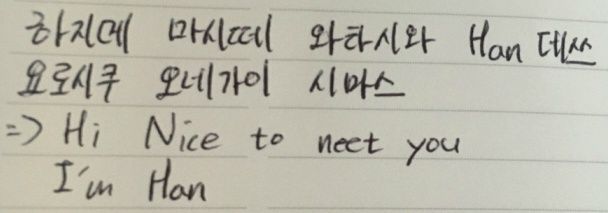 하지메 마시떼 와타시와 Han 데쓰
요로시쿠 오네가이 시마스
=> Hi Nice to neet you
I'm Han